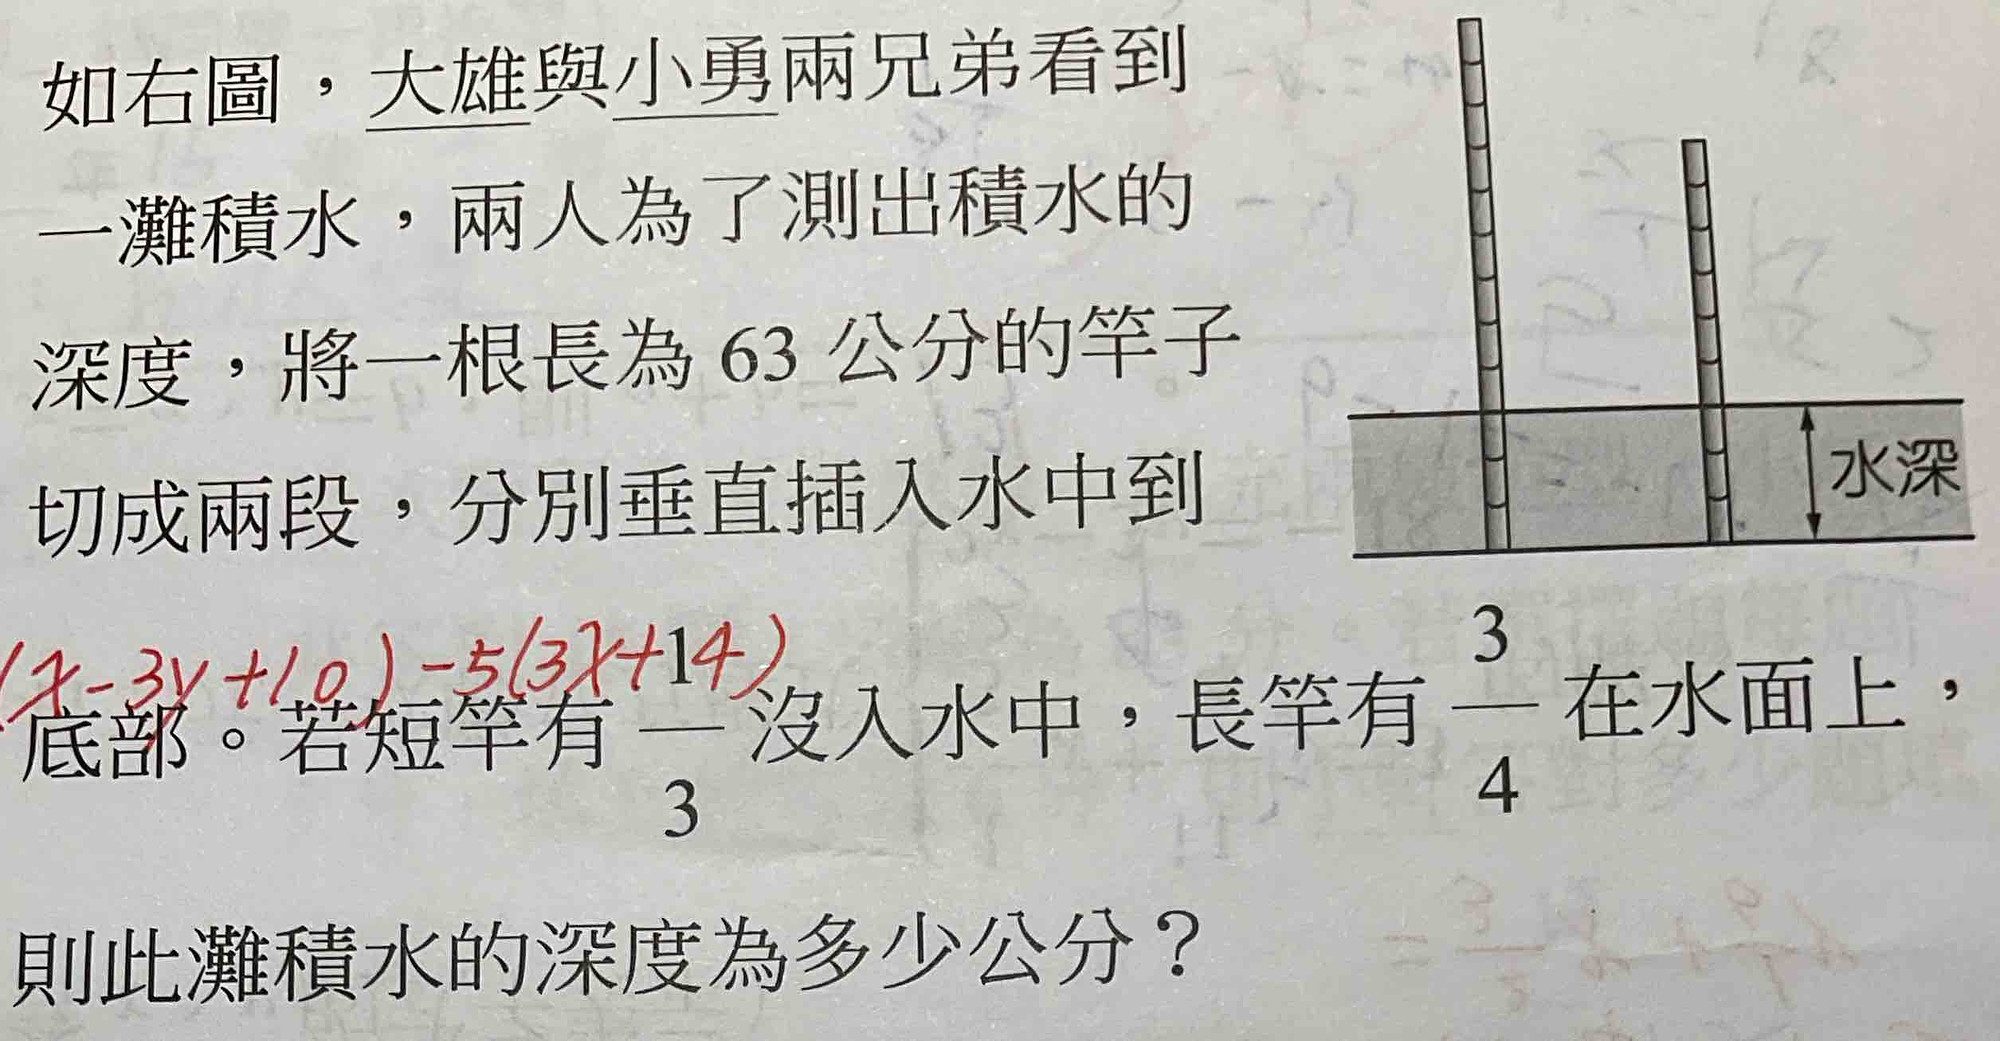 如右圖，大雄與小勇兩兄弟看到
一灘積水，兩人為了測出積水的
深度，將一根長為 63 公分的竿子
切成兩段，分別垂直插入水中到
水深
(x-3y+10)-5(3x+14)
底部。若短竿有 1/3 沒入水中，長竿有 3/4 在水面上，
則此灘積水的深度為多少公分？